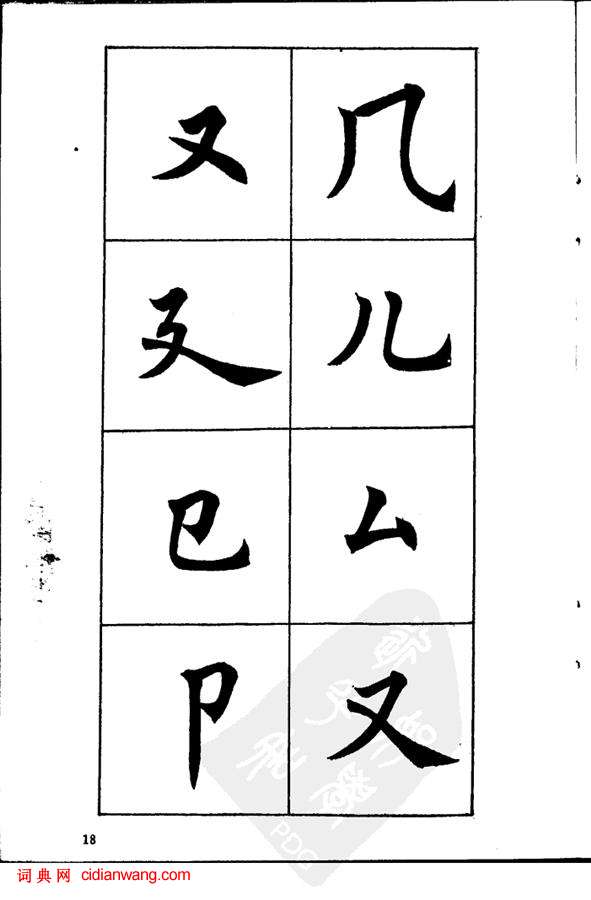 几
儿
厶
又
又
廴
巳
卩
18
词典网 cidianwang.com
PDG